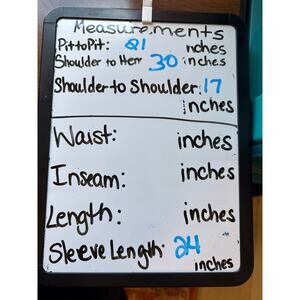 Measurements
Pit to Pit: 21 inches
Shoulder to Hem 30 inches
Shoulder to Shoulder: 17
inches
Waist: inches
Inseam: inches
Length: inches
Sleeve Length: 24
inches